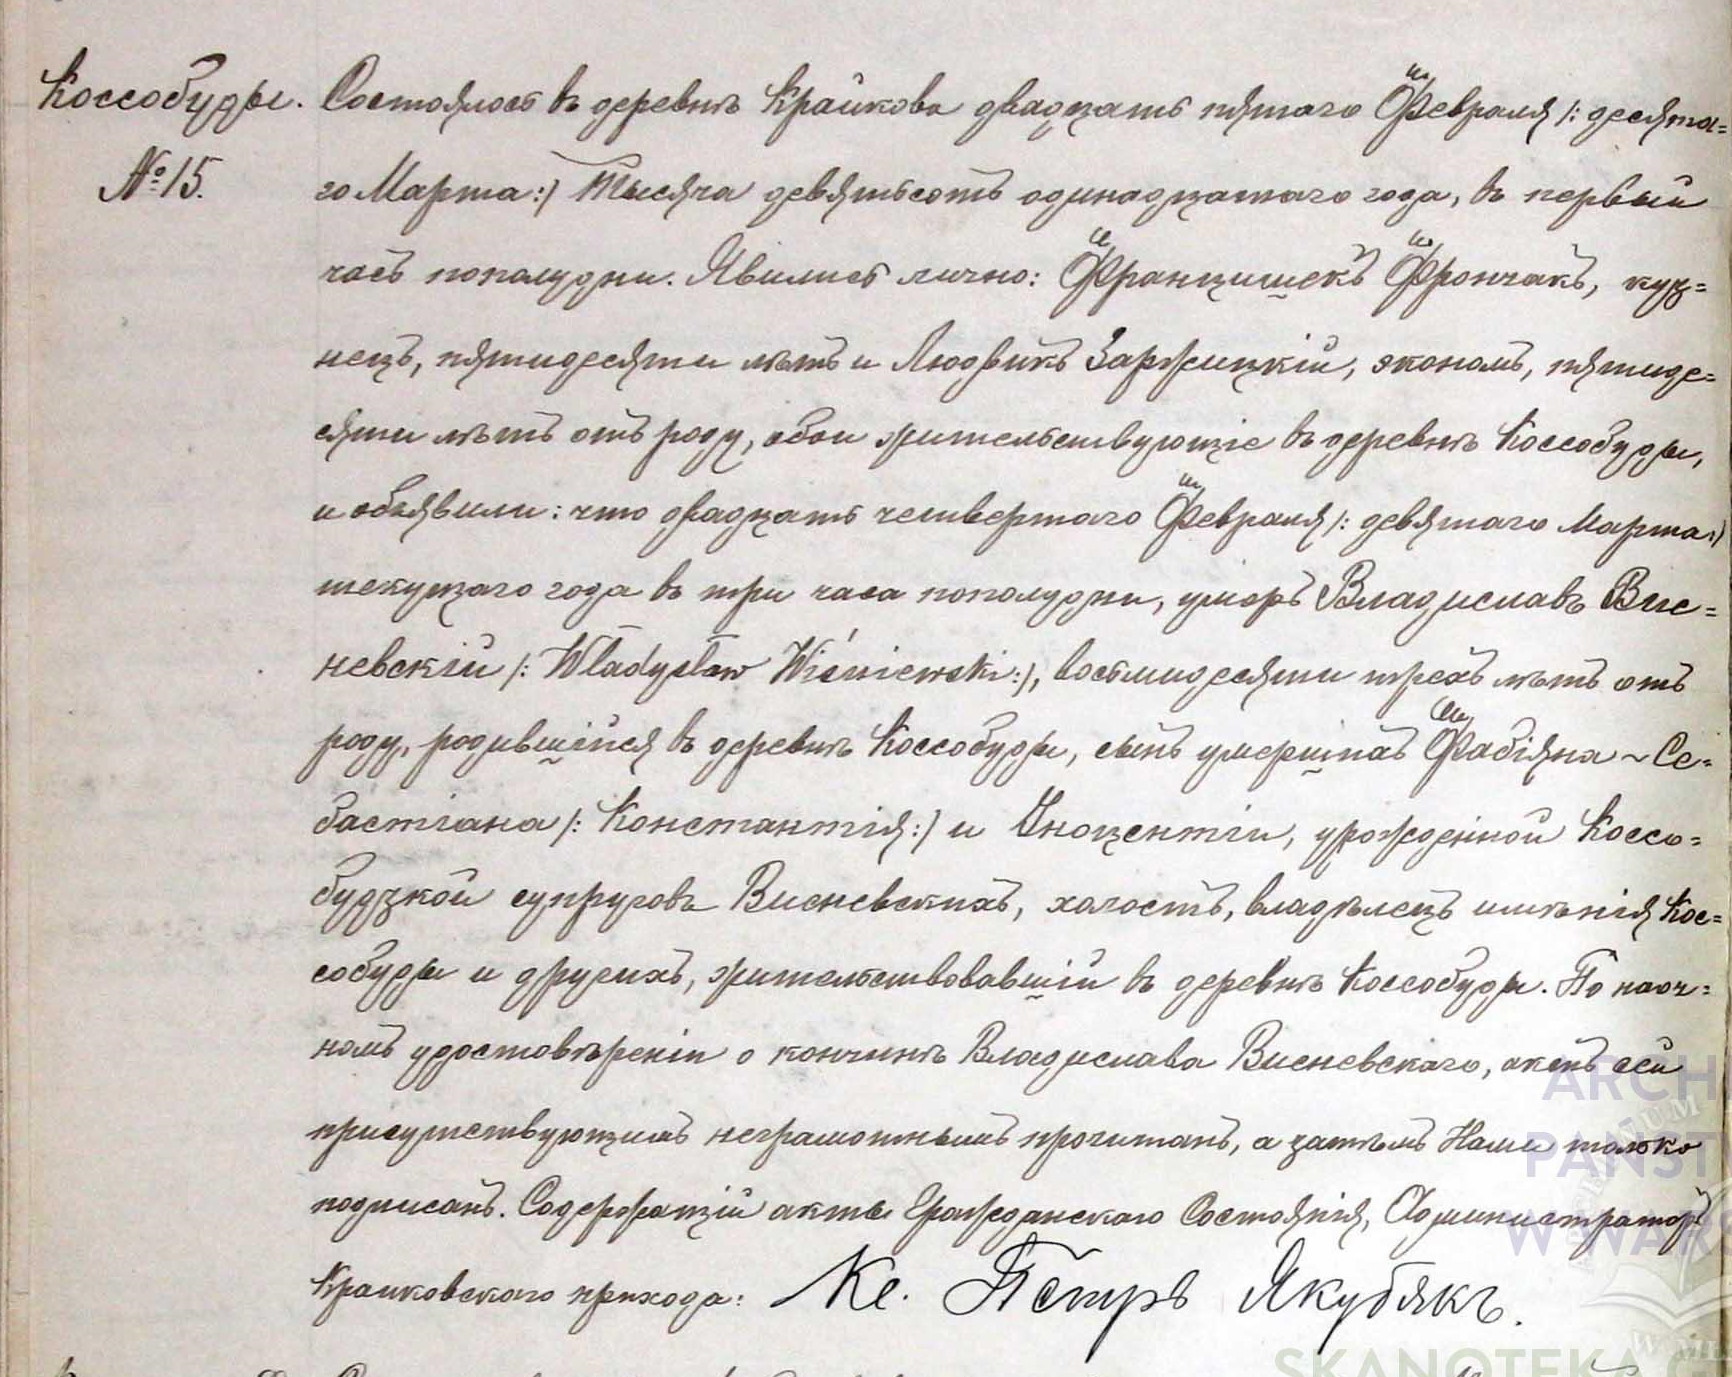 Коссобуды. Состоялось въ деревнѣ Крайкова двадцать пятаго Февраля /: десята=
№ 15. го Марта :/ тысяча девятьсотъ одинадцатаго года, въ первый
часъ пополудни. Явились лично: Францишекъ Фрончакъ, куз=
нецъ, пятидесяти лѣтъ и Людвикъ Заржицкій, экономъ, пятиде=
сяти лѣтъ отъ роду, обои жительствующіе въ деревнѣ Коссобуды,
и объявили: что двадцать четвертаго Февраля /: девятаго Марта :/
текущаго года въ три часа пополудни, умеръ Владиславъ Вис=
невскій /: Władysław Wiśniewski :/, восьмидесяти трехъ лѣтъ отъ
роду, родившійся въ деревнѣ Коссобуды, сынъ умершихъ Фабіяна ~ Се=
бастіана /: Константія :/ и Иноцентіи, урожденной Коссо=
будзкой супруговъ Висневскихъ, холостъ, владѣлецъ имѣнія Кос=
собуды и другихъ, жительствовавшій въ деревнѣ Коссобуды. По наоч=
номъ удостовѣреніи о кончинѣ Владислава Висневскаго, актъ сей
присутствующимъ неграмотнымъ прочитанъ, а затѣмъ Нами только
подписанъ. Содержащій акты Гражданскаго Состоянія, Администраторъ
Крайковскаго прихода: Кс. Петръ Якубякъ.